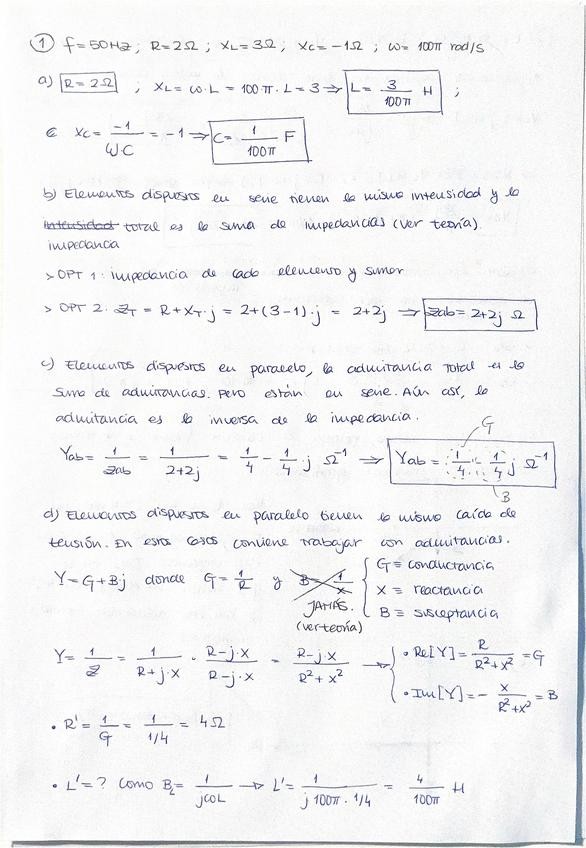 ① f=50Hz; R=2Ω; XL=3Ω; XC=-1Ω; ω=100π rad/s
a) R=2Ω ; XL=ω·L=100·π·L=3 ⇒ L= 3/100π H ;
XC= -1/ω·C = -1 ⇒ C= 1/100π F
b) Elementos dispuestos en serie tienen la misma intensidad y la
intensidad total es la suma de impedancias (ver teoría).
impedancia
> OPT 1: impedancia de cada elemento y sumar
> OPT 2: ZT = R+XT·j = 2+(3-1)·j = 2+2j ⇒ Zab=2+2j Ω
c) Elementos dispuestos en paralelo, la admitancia total es la
suma de admitancias. Pero están en serie. Aún así, la
admitancia es la inversa de la impedancia.
G
Yab= 1/Zab = 1/2+2j = 1/4 - 1/4·j Ω⁻¹ ⇒ Yab= 1/4 - 1/4 j Ω⁻¹
B
d) Elementos dispuestos en paralelo tienen la misma caída de
tensión. En estos casos conviene trabajar con admitancias.
Y=G+Bj donde G= 1/R y B= 1/X
G ≡ conductancia
X ≡ reactancia
B ≡ susceptancia
JAMÁS.
(ver teoría)
Y= 1/Z = 1/R+j·X · R-j·X/R-j·X = R-j·X/R²+X² → • Re[Y]= R/R²+X² =G
• Im[Y]=- X/R²+X² = B
• R'= 1/G = 1/1/4 = 4Ω
• L'=? Como BL= 1/jωL → L'= 1/j100π·1/4 = 4/100π H